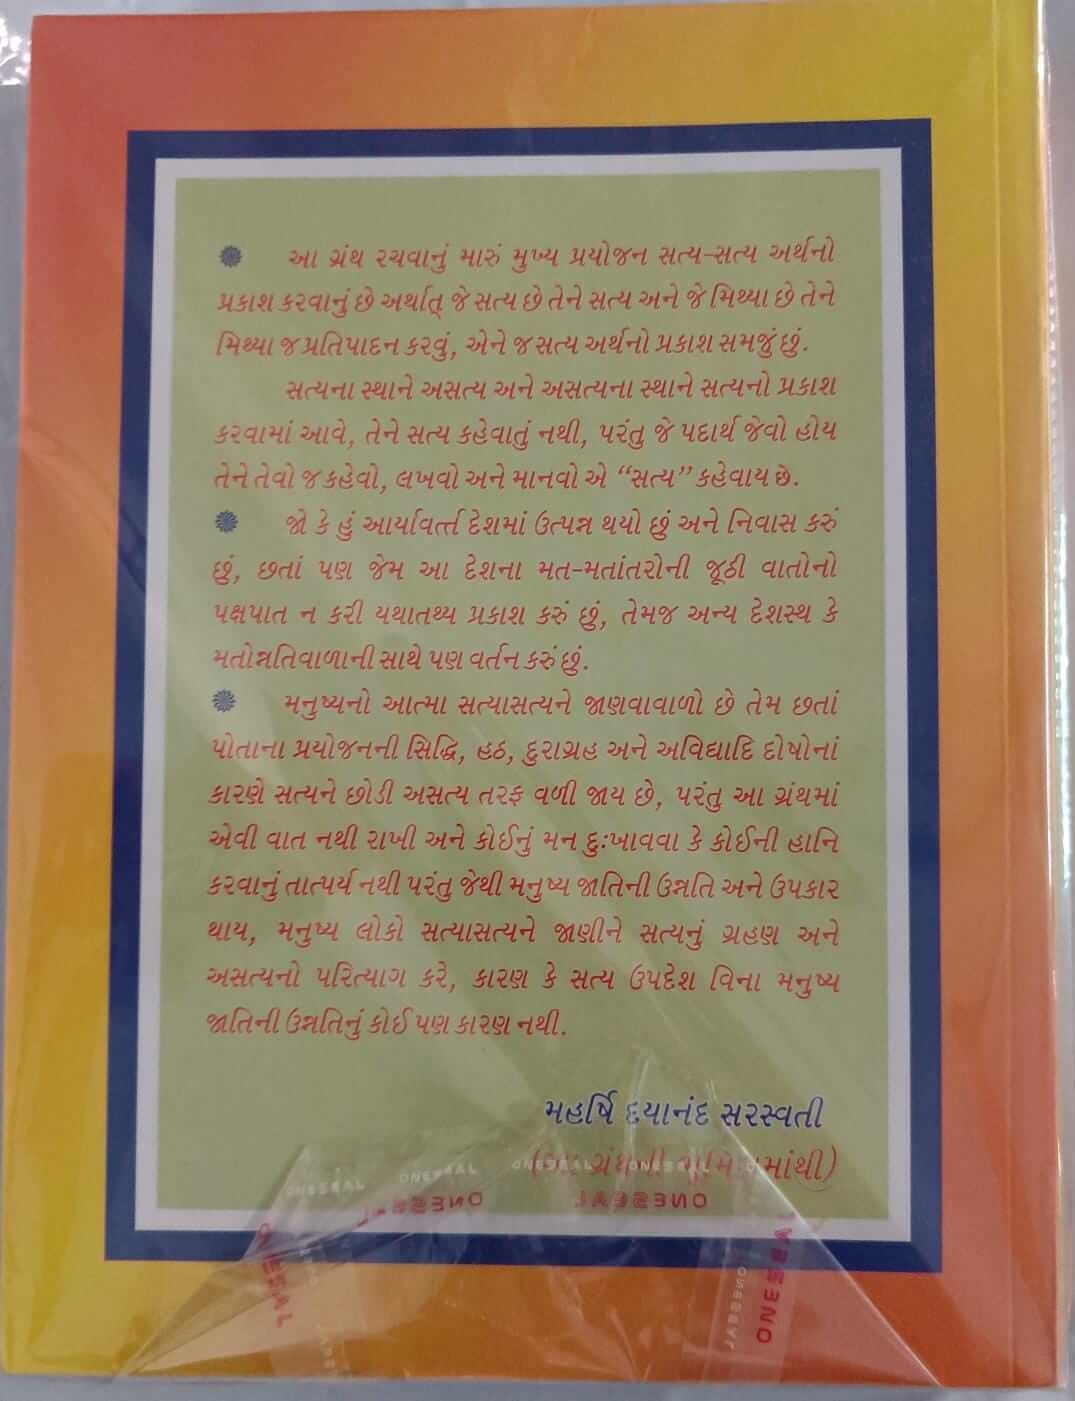 આ ગ્રંથ રચવાનું મારું મુખ્ય પ્રયોજન સત્ય-સત્ય અર્થનો
પ્રકાશ કરવાનું છે અર્થાત્ જે સત્ય છે તેને સત્ય અને જે મિથ્યા છે તેને
મિથ્યા જ પ્રતિપાદન કરવું, એને જ સત્ય અર્થનો પ્રકાશ સમજું છું.
સત્યના સ્થાને અસત્ય અને અસત્યના સ્થાને સત્યનો પ્રકાશ
કરવામાં આવે, તેને સત્ય કહેવાતું નથી, પરંતુ જે પદાર્થ જેવો હોય
તેને તેવો જ કહેવો, લખવો અને માનવો એ “સત્ય” કહેવાય છે.
જો કે હું આર્યાવર્ત્ત દેશમાં ઉત્પન્ન થયો છું અને નિવાસ કરું
છું, છતાં પણ જેમ આ દેશના મત-મતાંતરોની જૂઠી વાતોનો
પક્ષપાત ન કરી યથાતથ્ય પ્રકાશ કરું છું, તેમજ અન્ય દેશસ્થ કે
મતોન્નતિવાળાની સાથે પણ વર્તન કરું છું.
મનુષ્યનો આત્મા સત્યાસત્યને જાણવાવાળો છે તેમ છતાં
પોતાના પ્રયોજનની સિદ્ધિ, હઠ, દુરાગ્રહ અને અવિદ્યાદિ દોષોનાં
કારણે સત્યને છોડી અસત્ય તરફ વળી જાય છે, પરંતુ આ ગ્રંથમાં
એવી વાત નથી રાખી અને કોઈનું મન દુઃખાવવા કે કોઈની હાનિ
કરવાનું તાત્પર્ય નથી પરંતુ જેથી મનુષ્ય જાતિની ઉન્નતિ અને ઉપકાર
થાય, મનુષ્ય લોકો સત્યાસત્યને જાણીને સત્યનું ગ્રહણ અને
અસત્યનો પરિત્યાગ કરે, કારણ કે સત્ય ઉપદેશ વિના મનુષ્ય
જાતિની ઉન્નતિનું કોઈ પણ કારણ નથી.
મહર્ષિ દયાનંદ સરસ્વતી
ONESEAL ONESEAL ONESEAL ONESEAL
ONESEAL ONESEAL
ONESEAL
ONESEAL
ONESEAL